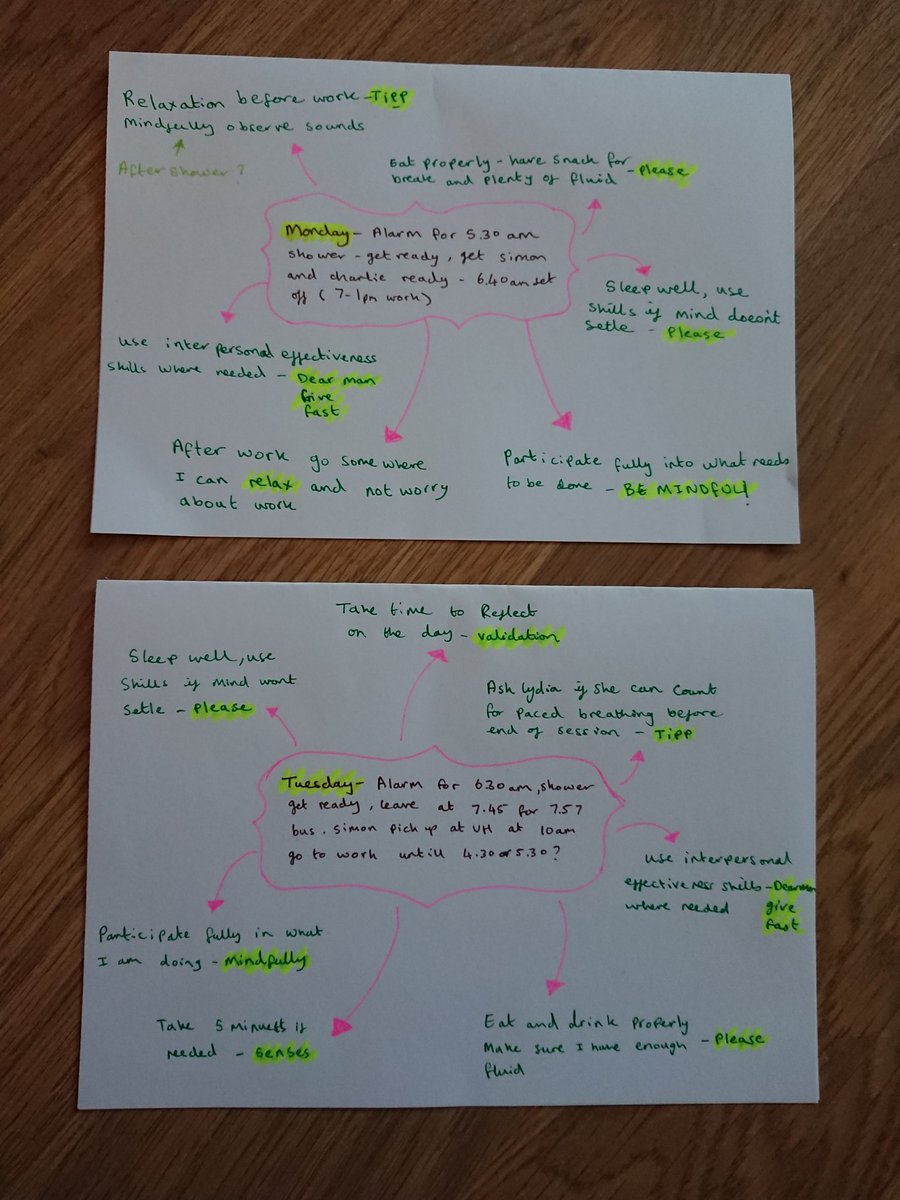 Relaxation before work - TIPP
Mindfully observe sounds
After shower?
Eat properly - have snack for
break and plenty of fluid - Please
Monday - Alarm for 5.30 am
shower - get ready, get simon
and charlie ready - 6.40am set
off (7-1pm work)
Sleep well, use
skills if mind doesn't
settle - Please
use interpersonal effectiveness
skills where needed - Dear man
Give
fast
After work go somewhere
I can relax and not worry
about work
Participate fully into what needs
to be done - BE MINDFUL!
Take time to Reflect
on the day - validation
Sleep well, use
skills if mind wont
settle - Please
Ask lydia if she can count
for paced breathing before
end of session - TIPP
Tuesday - Alarm for 6.30am, shower
get ready, leave at 7.45 for 7.57
bus. Simon pick up at UH at 10am
go to work untill 4.30 or 5.30?
use interpersonal
effectiveness skills - Dearman
where needed give
fast
Participate fully in what
I am doing - mindfully
Take 5 minuets if
needed - senses
Eat and drink properly
Make sure I have enough - Please
fluid